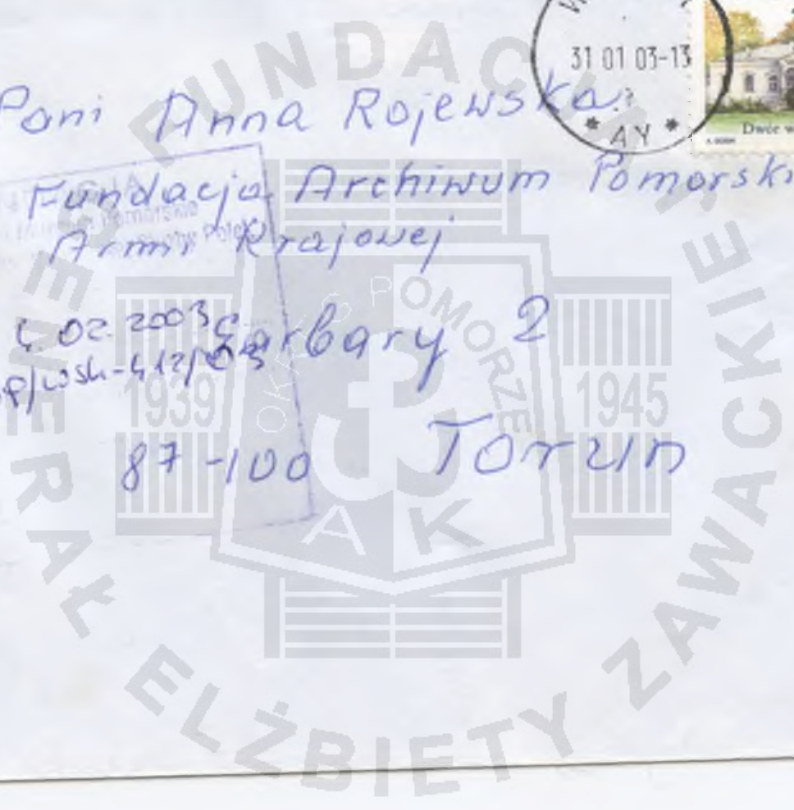 31 01 03-13
* AY *
Dwór w
Pani Anna Rojewska
Fundacja Archiwum Pomorski
Armii Krajowej
Pomorskie
4.02.2003
Garbary 2
87-100 Toruń
FUNDACJA
GENERAŁ ELŻBIETY ZAWACKIEJ
OKRĘG POMORZE
1939
1945
AK